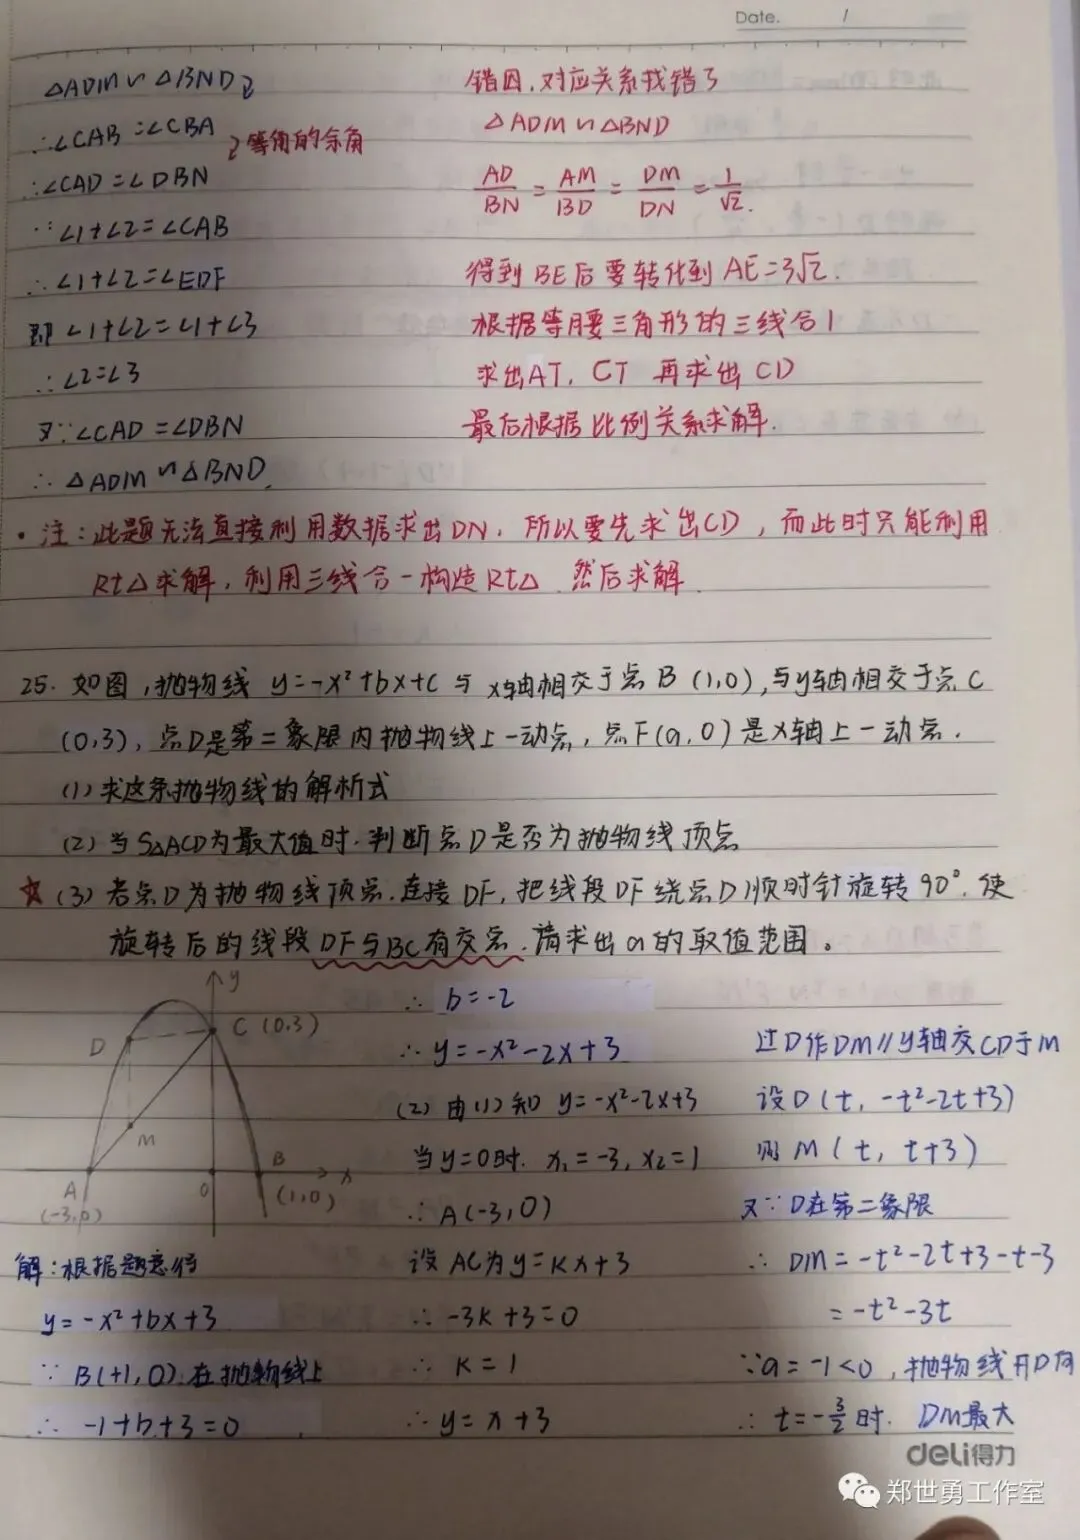 Date. /
△ADM∽△BND
∴∠CAB=∠CBA
等角的余角
∴∠CAD=∠DBN
∵∠1+∠2=∠CAB
∴∠1+∠2=∠EDF
即∠1+∠2=∠1+∠3
∴∠2=∠3
又∵∠CAD=∠DBN
∴△ADM∽△BND.
错因.对应关系找错了
△ADM∽△BND
AD/BN=AM/BD=DM/DN=1/√2.
得到BE后要转化到AE=3√2.
根据等腰三角形的三线合1
求出AT.CT 再求出CD
最后根据比例关系求解.
·注:此题无法直接利用数据求出DN.所以要先求出CD,而此时只能利用
Rt△求解,利用三线合一构造Rt△.然后求解.
25.如图,抛物线 y=-x²+bx+c 与x轴相交于点B(1,0),与y轴相交于点C
(0,3),点D是第二象限内抛物线上一动点,点F(a,0)是x轴上一动点.
(1)求这条抛物线的解析式
(2)当S△ACD为最大值时.判断点D是否为抛物线顶点
☆(3)若点D为抛物线顶点.连接DF,把线段DF绕点D顺时针旋转90°.使
旋转后的线段DF与BC有交点.请求出a的取值范围。
y
D
C(0,3)
M
A
(-3,0)
O
B
(1,0)
x
解:根据题意得
y=-x²+bx+3
∵B(+1,0)在抛物线上
∴-1+b+3=0
∴b=-2
∴y=-x²-2x+3
(2)由(1)知 y=-x²-2x+3
当y=0时.x₁=-3,x₂=1
∴A(-3,0)
设AC为y=kx+3
∴-3k+3=0
∴k=1
∴y=x+3
过D作DM∥y轴交CD于M
设D(t,-t²-2t+3)
则M(t,t+3)
又∵D在第二象限
∴DM=-t²-2t+3-t-3
=-t²-3t
∵a=-1<0,抛物线开口向
∴t=-3/2时.DM最大
deli得力
郑世勇工作室